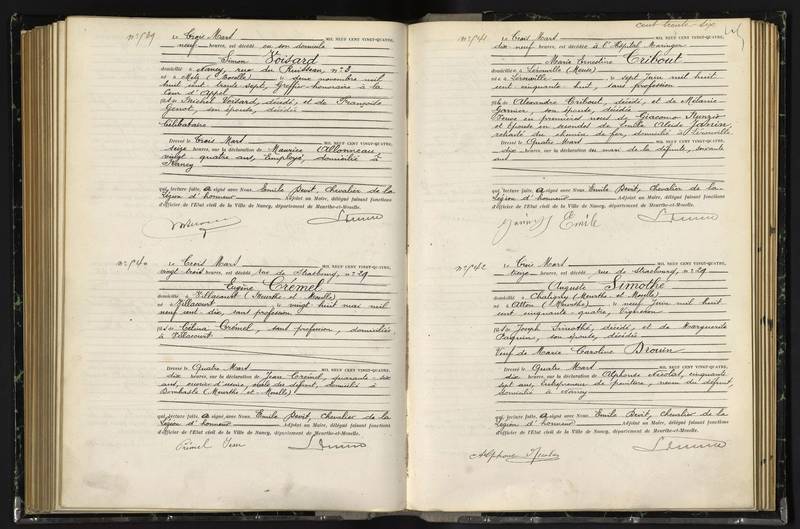 n° 539 Le Trois Mars MIL NEUF CENT VINGT-QUATRE,
neuf heures, est décédé en son domicile
Simon Voisard
domicilié à Nancy, rue du Ruisseau, n° 3,
né à Metz (Moselle) le deux novembre mil
huit cent trente sept, Greffier honoraire à la
Cour d'Appel
fils de Michel Voisard, décédé, et de Françoise
son épouse, décédée
Célibataire
Dressé le Trois Mars MIL NEUF CENT VINGT-QUATRE,
seize heures, sur la déclaration de Maurice Allonneau
vingt quatre ans, Employé, domicilié à
Nancy
qui, lecture faite, a signé avec Nous, Emile Devit, Chevalier de la
Légion d'honneur Adjoint au Maire, délégué faisant fonctions
d'Officier de l'Etat civil de la Ville de Nancy, département de Meurthe-et-Moselle.
n° 540 Le Trois Mars MIL NEUF CENT VINGT-QUATRE,
vingt trois heures, est décédé rue de Strasbourg, n° 29
Eugène Crémel
domicilié à Villacourt (Meurthe et Moselle)
né à Villacourt le vingt huit mai mil
neuf cent dix, sans profession
fils de Célina Crémel, sans profession, domiciliée
à Villacourt
Dressé le Quatre Mars MIL NEUF CENT VINGT-QUATRE,
dix heures, sur la déclaration de Jean Crémel, quarante six
ans, ouvrier d'usine, oncle du défunt, domicilié à
Dombasle (Meurthe et Moselle)
qui, lecture faite, a signé avec Nous, Emile Devit, Chevalier de la
Légion d'honneur Adjoint au Maire, délégué faisant fonctions
d'Officier de l'Etat civil de la Ville de Nancy, département de Meurthe-et-Moselle.
Crémel Jean
cent trente-six
n° 541 Le Trois Mars MIL NEUF CENT VINGT-QUATRE,
dix neuf heures, est décédée à l'Hôpital Maringer
Marie Ernestine Cribout
domiciliée à Lérouville (Meuse)
née à Lérouville le sept Juin mil huit
cent cinquante huit, sans profession
fille de Alexandre Cribout, décédé, et de Mélanie
Garnier, son épouse, décédée
Veuve en premières noces de Giacomo
et épouse en secondes de Emile Alcide Janin,
retraité du chemin de fer, domicilié à Lérouville
Dressé le Quatre Mars MIL NEUF CENT VINGT-QUATRE,
dix heures, sur la déclaration du mari de la défunte, soixante
ans
qui, lecture faite, a signé avec Nous, Emile Devit, Chevalier de la
Légion d'honneur Adjoint au Maire, délégué faisant fonctions
d'Officier de l'Etat civil de la Ville de Nancy, département de Meurthe-et-Moselle.
Emile
n° 542 Le Trois Mars MIL NEUF CENT VINGT-QUATRE,
treize heures, est décédé rue de Strasbourg, n° 29
Auguste Simothé
domicilié à Chaligny (Meurthe et Moselle)
né à Atton (Meurthe) le neuf Juin mil huit
cent cinquante quatre, Vigneron
fils de Joseph Simothé, décédé, et de Marguerite
son épouse, décédée
Veuf de Marie Caroline Drouin
Dressé le Quatre Mars MIL NEUF CENT VINGT-QUATRE,
dix heures, sur la déclaration de Alphonse Nicolas, cinquante
sept ans, Entrepreneur de peinture, neveu du défunt,
domicilié à Nancy
qui, lecture faite, a signé avec Nous, Emile Devit, Chevalier de la
Légion d'honneur Adjoint au Maire, délégué faisant fonctions
d'Officier de l'Etat civil de la Ville de Nancy, département de Meurthe-et-Moselle.
Alphonse